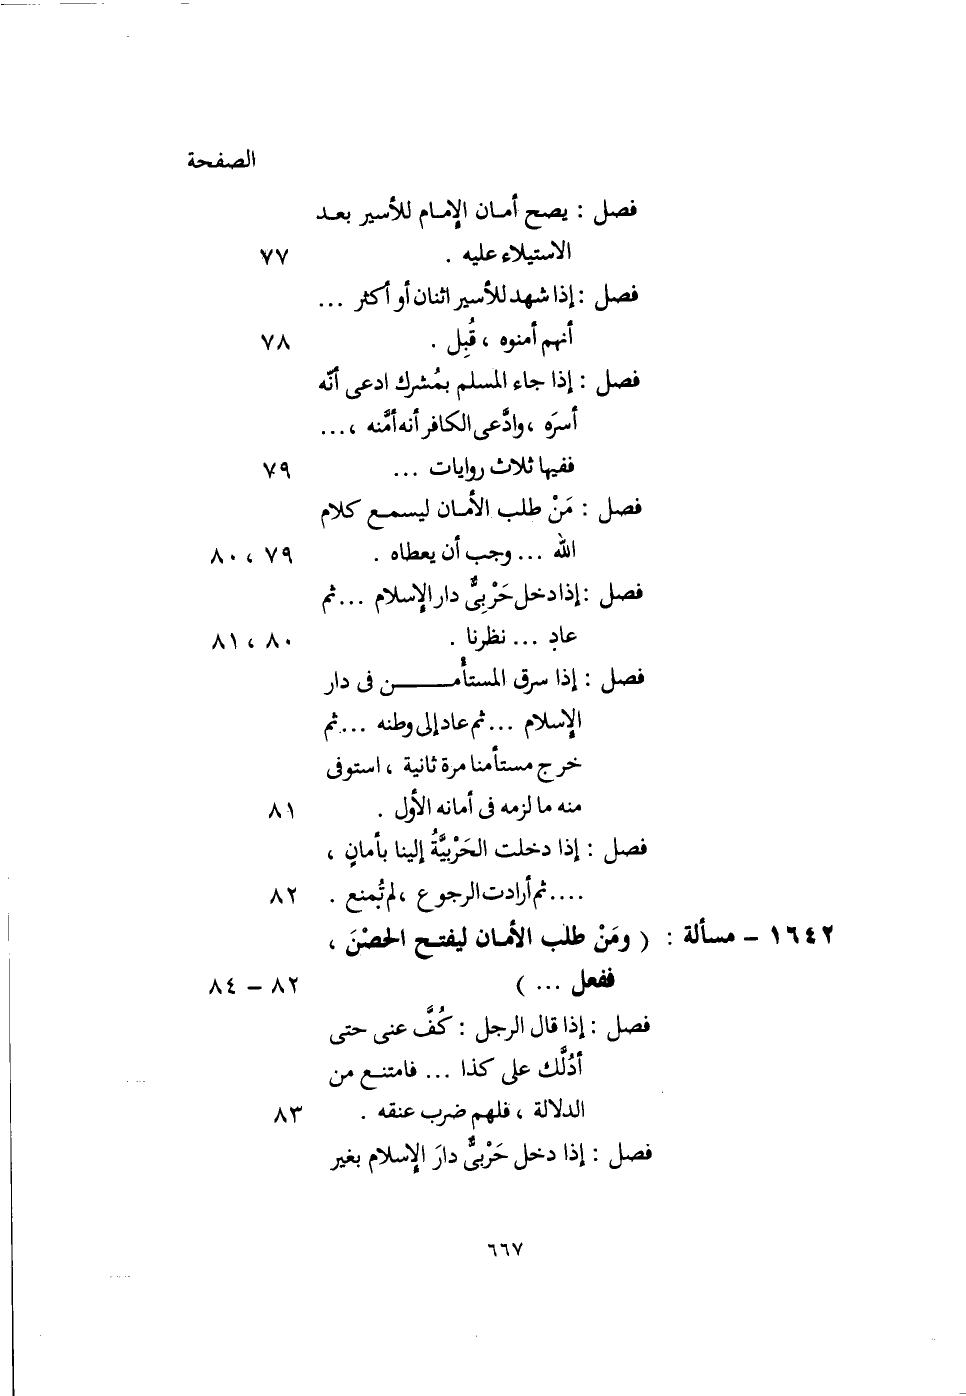 الصفحة
فصل : يصح أمان الإمام للأسير بعد
الاستيلاء عليه . ٧٧
فصل : إذا شهد للأسير اثنان أو أكثر ...
أنهم أمنوه ، قُبِل . ٧٨
فصل : إذا جاء المسلم بمُشرك ادعى أنَّه
أسرَه ، وادَّعى الكافر أنه أمَّنه ، ...
ففيها ثلاث روايات ... ٧٩
فصل : مَنْ طلب الأمان ليسمع كلام
الله ... وجب أن يعطاه . ٧٩ ، ٨٠
فصل : إذا دخل حَرْبِىٌّ دار الإسلام ... ثم
عاد ... نظرنا . ٨٠ ، ٨١
فصل : إذا سرق المستأمن فى دار
الإسلام ... ثم عاد إلى وطنه ... ثم
خرج مستأمنا مرة ثانية ، استوفى
منه ما لزمه فى أمانه الأول . ٨١
فصل : إذا دخلت الحَرْبيَّةُ إلينا بأمانٍ ،
.... ثم أرادت الرجوع ، لم تُمنع . ٨٢
١٦٤٢ - مسألة : ( ومَنْ طلب الأمان ليفتح الحصْنَ ،
ففعل ... ) ٨٢ - ٨٤
فصل : إذا قال الرجل : كُفَّ عنى حتى
أدُلَّك على كذا ... فامتنع من
الدلالة ، فلهم ضرب عنقه . ٨٣
فصل : إذا دخل حَرْبىٌّ دارَ الإسلام بغير
٦٦٧